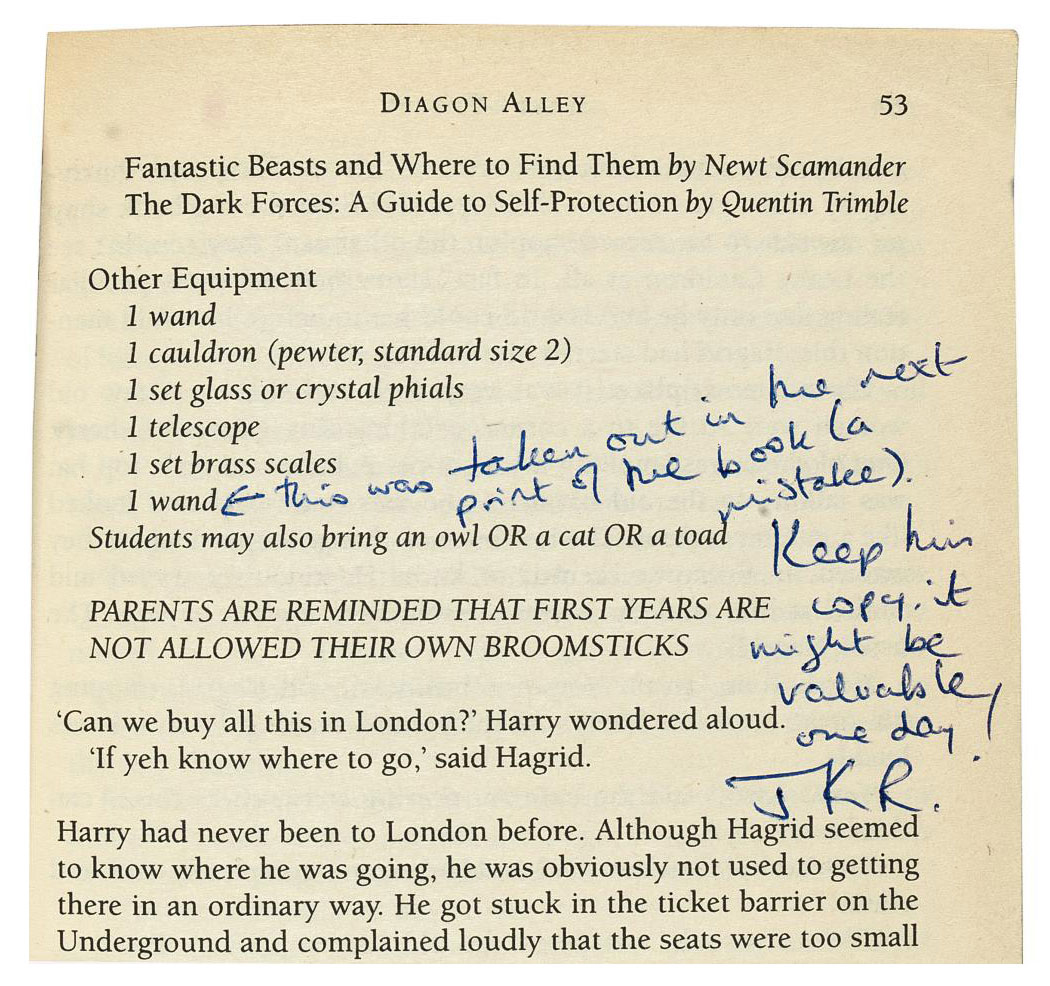 DIAGON ALLEY 53
Fantastic Beasts and Where to Find Them by Newt Scamander
The Dark Forces: A Guide to Self-Protection by Quentin Trimble
Other Equipment
1 wand
1 cauldron (pewter, standard size 2)
1 set glass or crystal phials
1 telescope
1 set brass scales
1 wand ← this was taken out in the next
print of the book (a
mistake).
Students may also bring an owl OR a cat OR a toad
Keep this
copy, it
might be
valuable
one day!
JKR.
PARENTS ARE REMINDED THAT FIRST YEARS ARE
NOT ALLOWED THEIR OWN BROOMSTICKS
‘Can we buy all this in London?’ Harry wondered aloud.
‘If yeh know where to go,’ said Hagrid.
Harry had never been to London before. Although Hagrid seemed
to know where he was going, he was obviously not used to getting
there in an ordinary way. He got stuck in the ticket barrier on the
Underground and complained loudly that the seats were too small